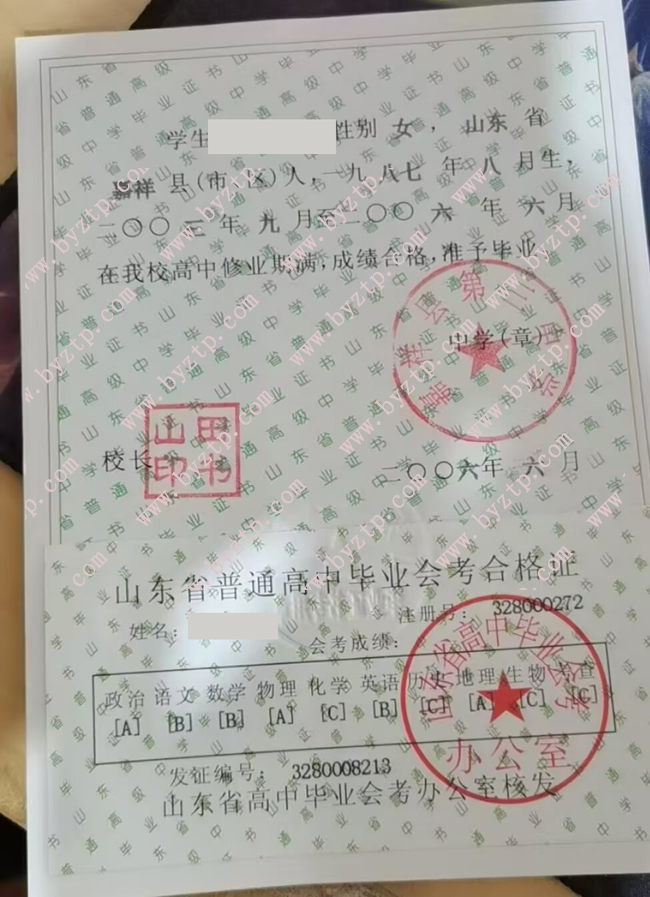 学生 性别 女 ， 山东 省
嘉祥 县(市 区)人，一九 八七 年 八 月生，
二〇〇三 年 九 月至二〇〇 六 年 六 月
在我校高中修业期满，成绩合格，准予毕业。
中学(章)
校长
田书
山印
二〇〇六年 六 月
山东省普通高中毕业会考合格证
姓名： 注册号： 328000272
会考成绩：
政治 语文 数学 物理 化学 英语 历史 地理 生物 考查
[A] [B] [B] [A] [C] [B] [C] [A] [C] [C]
发证编号： 3280008213
山东省高中毕业会考办公室核发
山东省高中毕业会考
办公室
山东省普通高级中学毕业证书
www.byztp.com